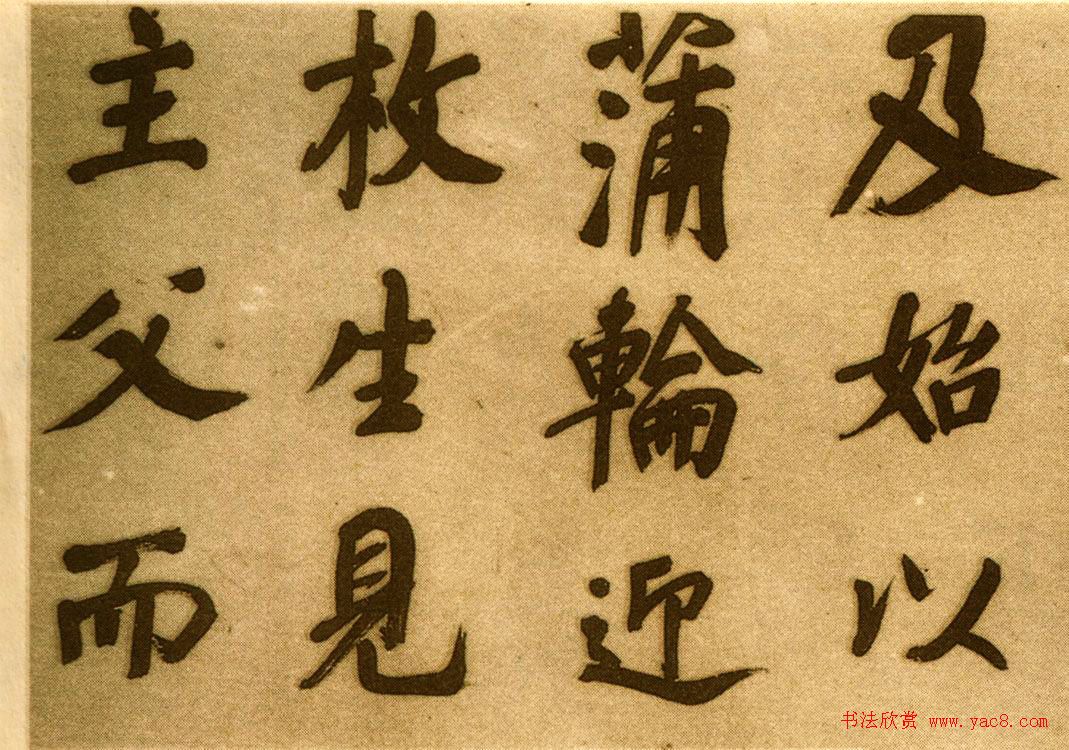 及始以
蒲輪迎
枚生見
主父而
书法欣赏 www.yac8.com